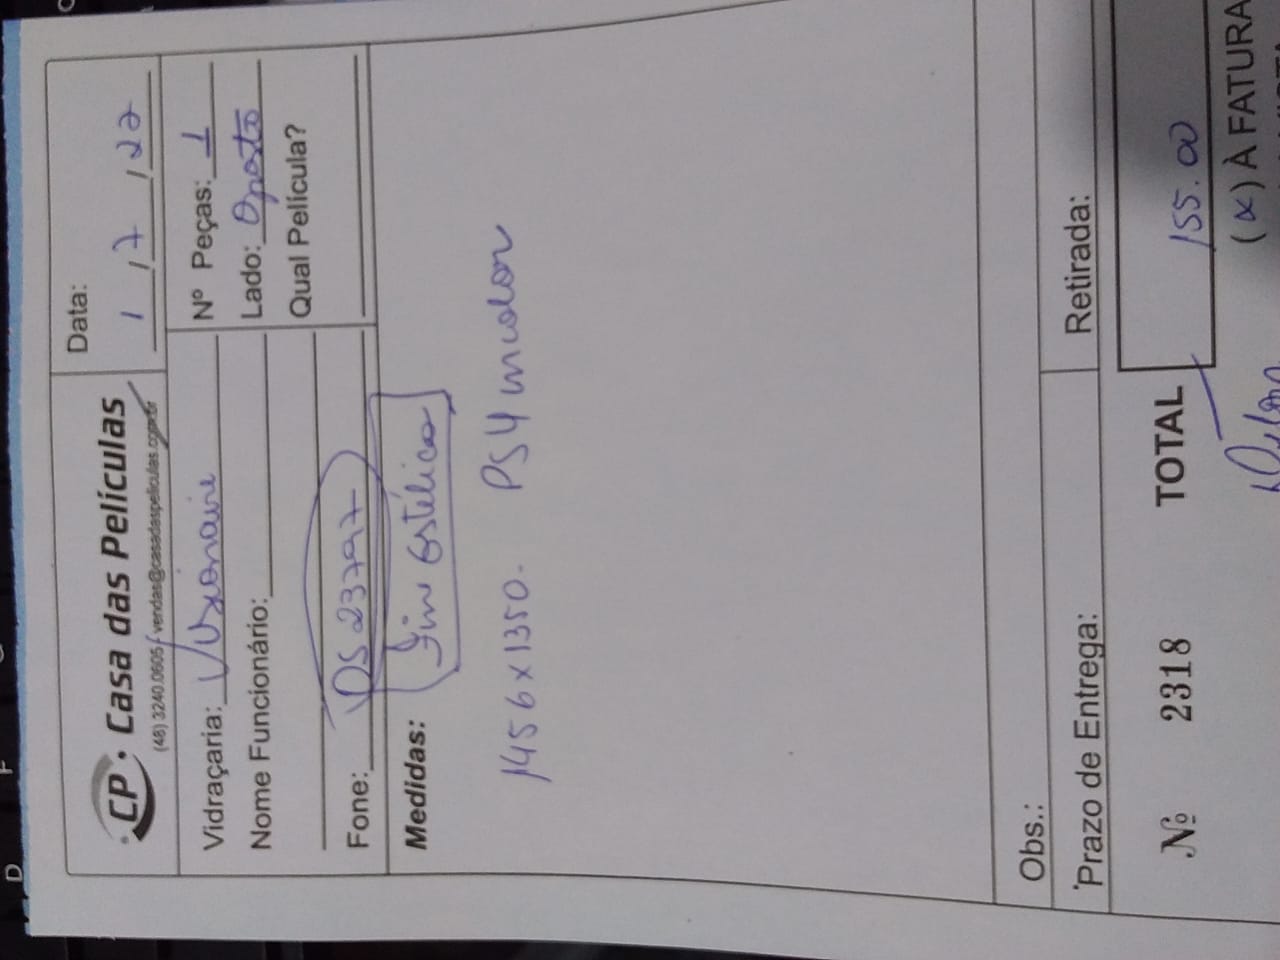 CP. Casa das Películas
(48) 3240.0605 / vendas@casadaspeliculas.com.br
Data:
1 / 7 / 22
Vidraçaria:
Nº Peças: 1
Nome Funcionário:
Lado: Oposto
Qual Película?
Fone: OS 23797
Medidas:
1456 x 1350. PS4 incolor
Obs.:
Prazo de Entrega:
Retirada:
Nº 2318
TOTAL 155.00
(x) À FATURA